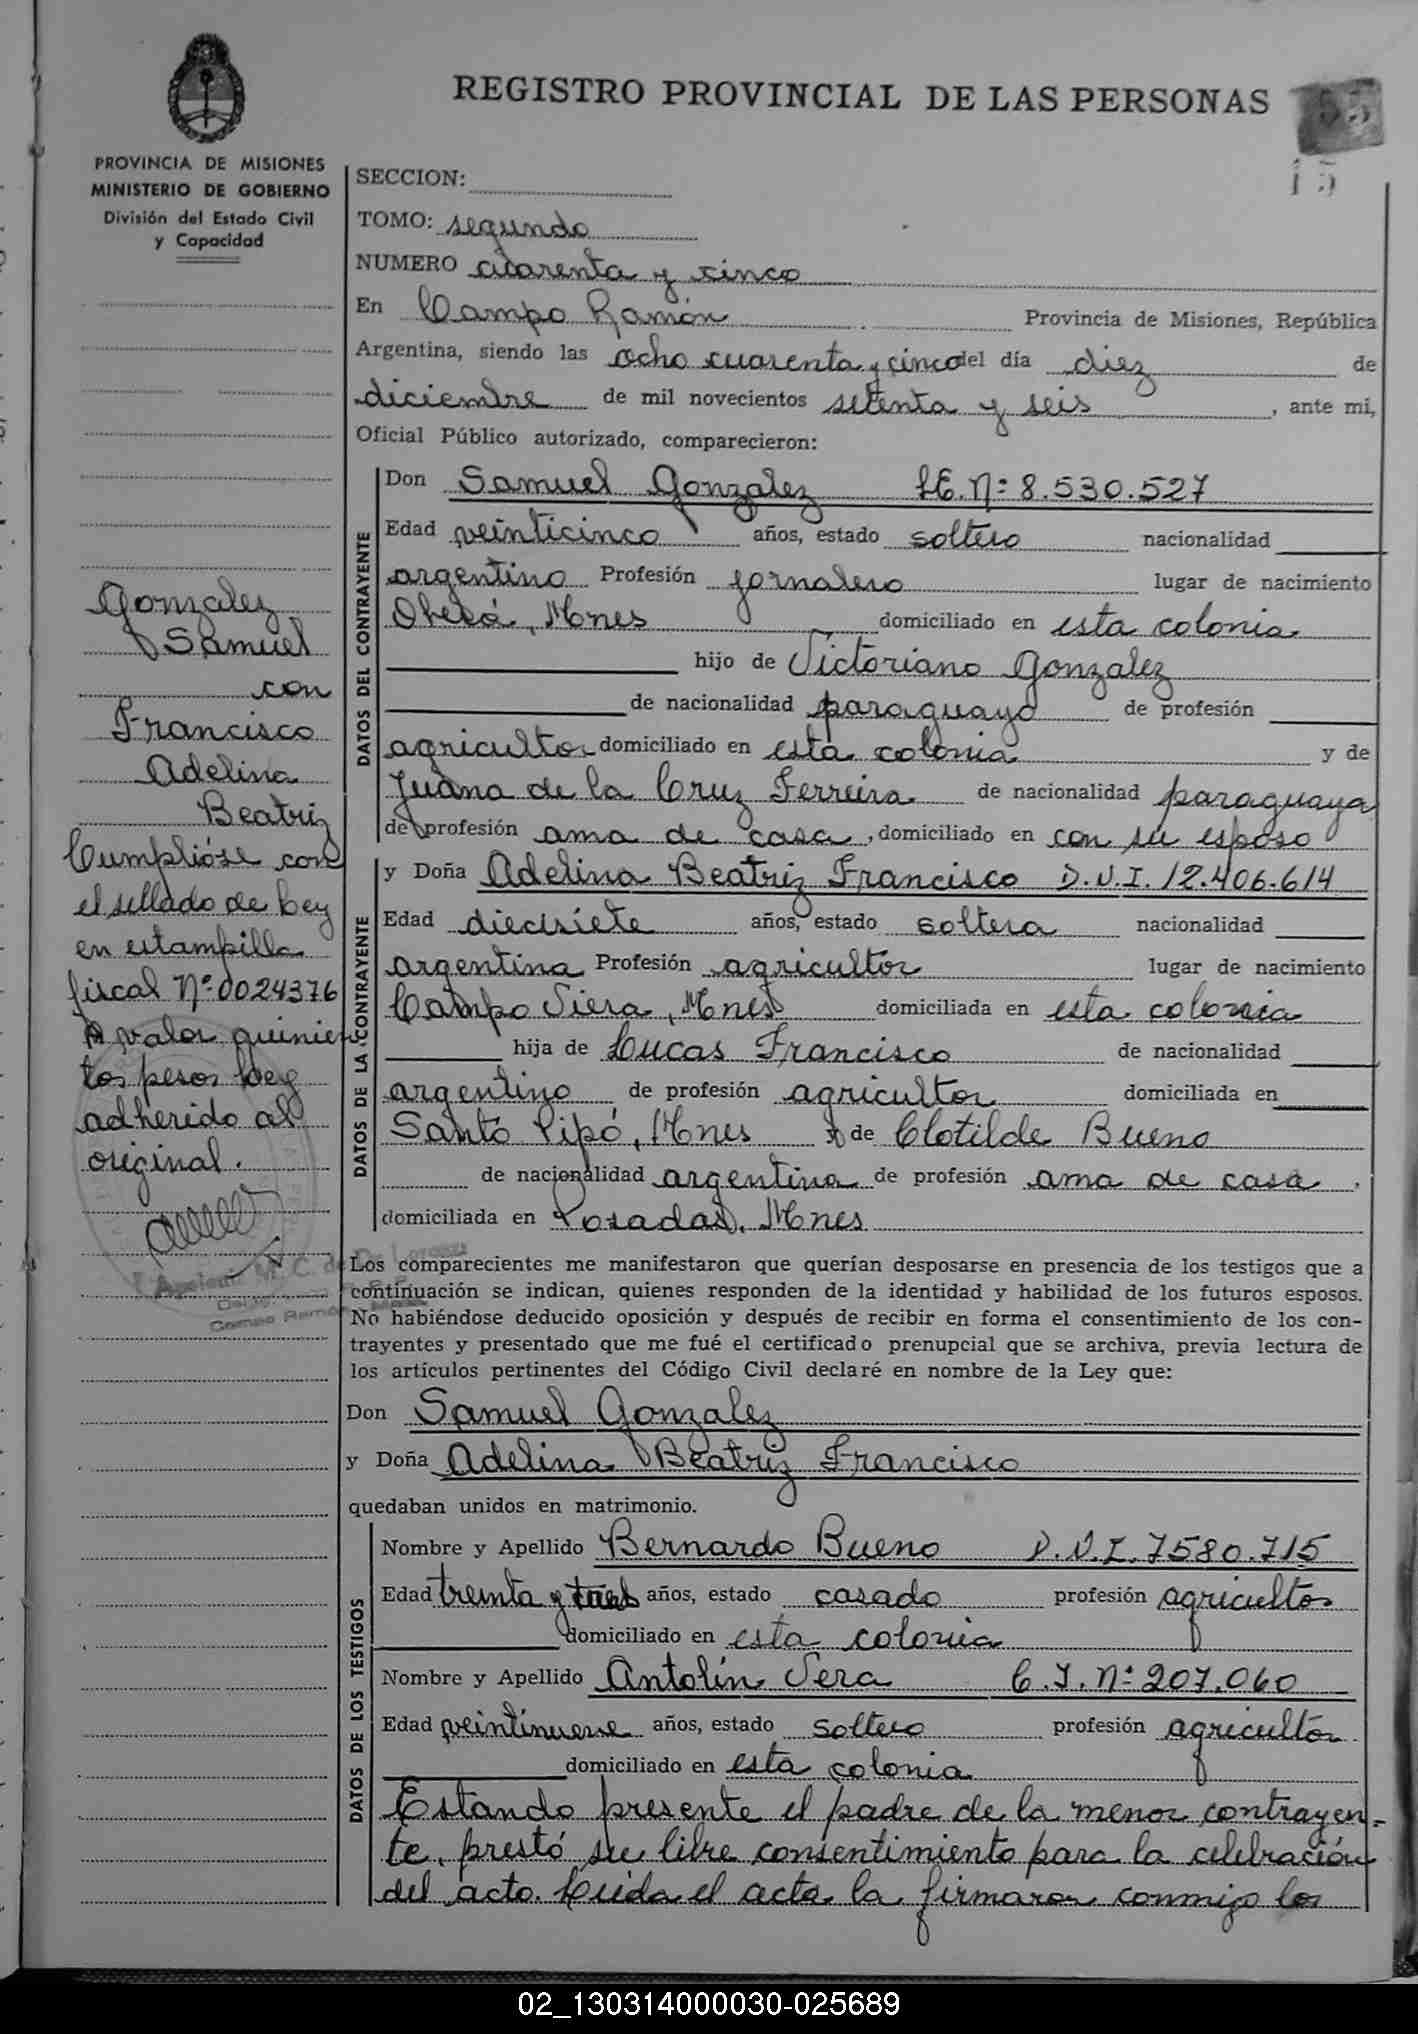 REGISTRO PROVINCIAL DE LAS PERSONAS
15
PROVINCIA DE MISIONES
MINISTERIO DE GOBIERNO
División del Estado Civil
y Capacidad
SECCION:
TOMO: segundo
NUMERO cuarenta y cinco
En Campo Ramón Provincia de Misiones, República
Argentina, siendo las ocho cuarenta y cinco del día diez de
diciembre de mil novecientos setenta y seis, ante mi,
Oficial Público autorizado, comparecieron:
DATOS DEL CONTRAYENTE
Don Samuel Gonzalez L.E. Nº 8.530.527
Edad veinticinco años, estado soltero nacionalidad
argentino Profesión jornalero lugar de nacimiento
Oberá, Mnes domiciliado en esta colonia
hijo de Victoriano Gonzalez
de nacionalidad paraguayo de profesión
agricultor domiciliado en esta colonia y de
Juana de la Cruz Ferreira de nacionalidad paraguaya
de profesión ama de casa, domiciliado en con su esposo
DATOS DE LA CONTRAYENTE
y Doña Adelina Beatriz Francisco D.N.I. 12.406.614
Edad diecisiete años, estado soltera nacionalidad
argentina Profesión agricultor lugar de nacimiento
Campo Viera, Mnes domiciliada en esta colonia
hija de Lucas Francisco de nacionalidad
argentino de profesión agricultor domiciliada en
Santo Pipó, Mnes y de Clotilde Bueno
de nacionalidad argentina de profesión ama de casa.
domiciliada en Posadas, Mnes
Gonzalez
Samuel
con
Francisco
Adelina
Beatriz
Cumplióse con
el sellado de Ley
en estampilla
fiscal Nº 0024376
valor quinien
tos pesos Ley
adherido al
original.
M. C. de De
Campo Ramón
Los comparecientes me manifestaron que querían desposarse en presencia de los testigos que a
continuación se indican, quienes responden de la identidad y habilidad de los futuros esposos.
No habiéndose deducido oposición y después de recibir en forma el consentimiento de los con-
trayentes y presentado que me fué el certificado prenupcial que se archiva, previa lectura de
los artículos pertinentes del Código Civil declaré en nombre de la Ley que:
Don Samuel Gonzalez
y Doña Adelina Beatriz Francisco
quedaban unidos en matrimonio.
DATOS DE LOS TESTIGOS
Nombre y Apellido Bernardo Bueno D.N.I. 7580.715
Edad treinta y tres años, estado casado profesión agricultor
domiciliado en esta colonia
Nombre y Apellido Antolín Vera C.I. Nº 207.060
Edad veintinueve años, estado soltero profesión agricultor
domiciliado en esta colonia
Estando presente el padre de la menor contrayen-
te, prestó su libre consentimiento para la celebración
del acto. Leída el acta la firmaron conmigo los
02_130314000030-025689